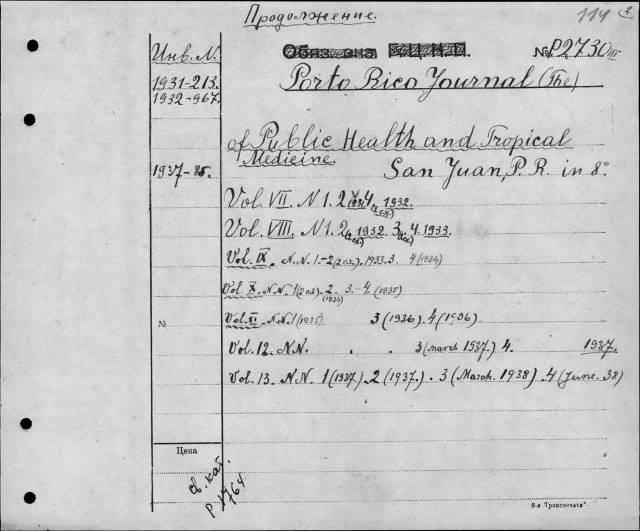 Продолжение.
114 2
Инв. N.
№ P2730 III
1931-213.
1932-967.
Porto Rico Journal (The)
of Public Health and Tropical
Medicine
San Juan, P. R. in 8°
1937-85.
Vol. VII. N 1. 2 4 1932.
Vol. VIII. N 1. 2 (2 ex) 1932. 3 (2 ex) 4. 1933.
Vol. IX. N.N. 1.-2 (2 ex). 1933. 3. 4 (1934)
Vol. X. N.N. 1 (2 ex). 2. (1934) 3.-4. (1935)
№ Vol. XI. N.N. 1 (1935) 3 (1936). 4 (1936)
Vol. 12. N.N. . . 3 (march 1937.) 4. 1937.
Vol. 13. N.N. 1 (1937). 2 (1937). 3 (March. 1938). 4 (June. 38)
Цена
св. кат.
P 1764
8-я „Транспечати“.